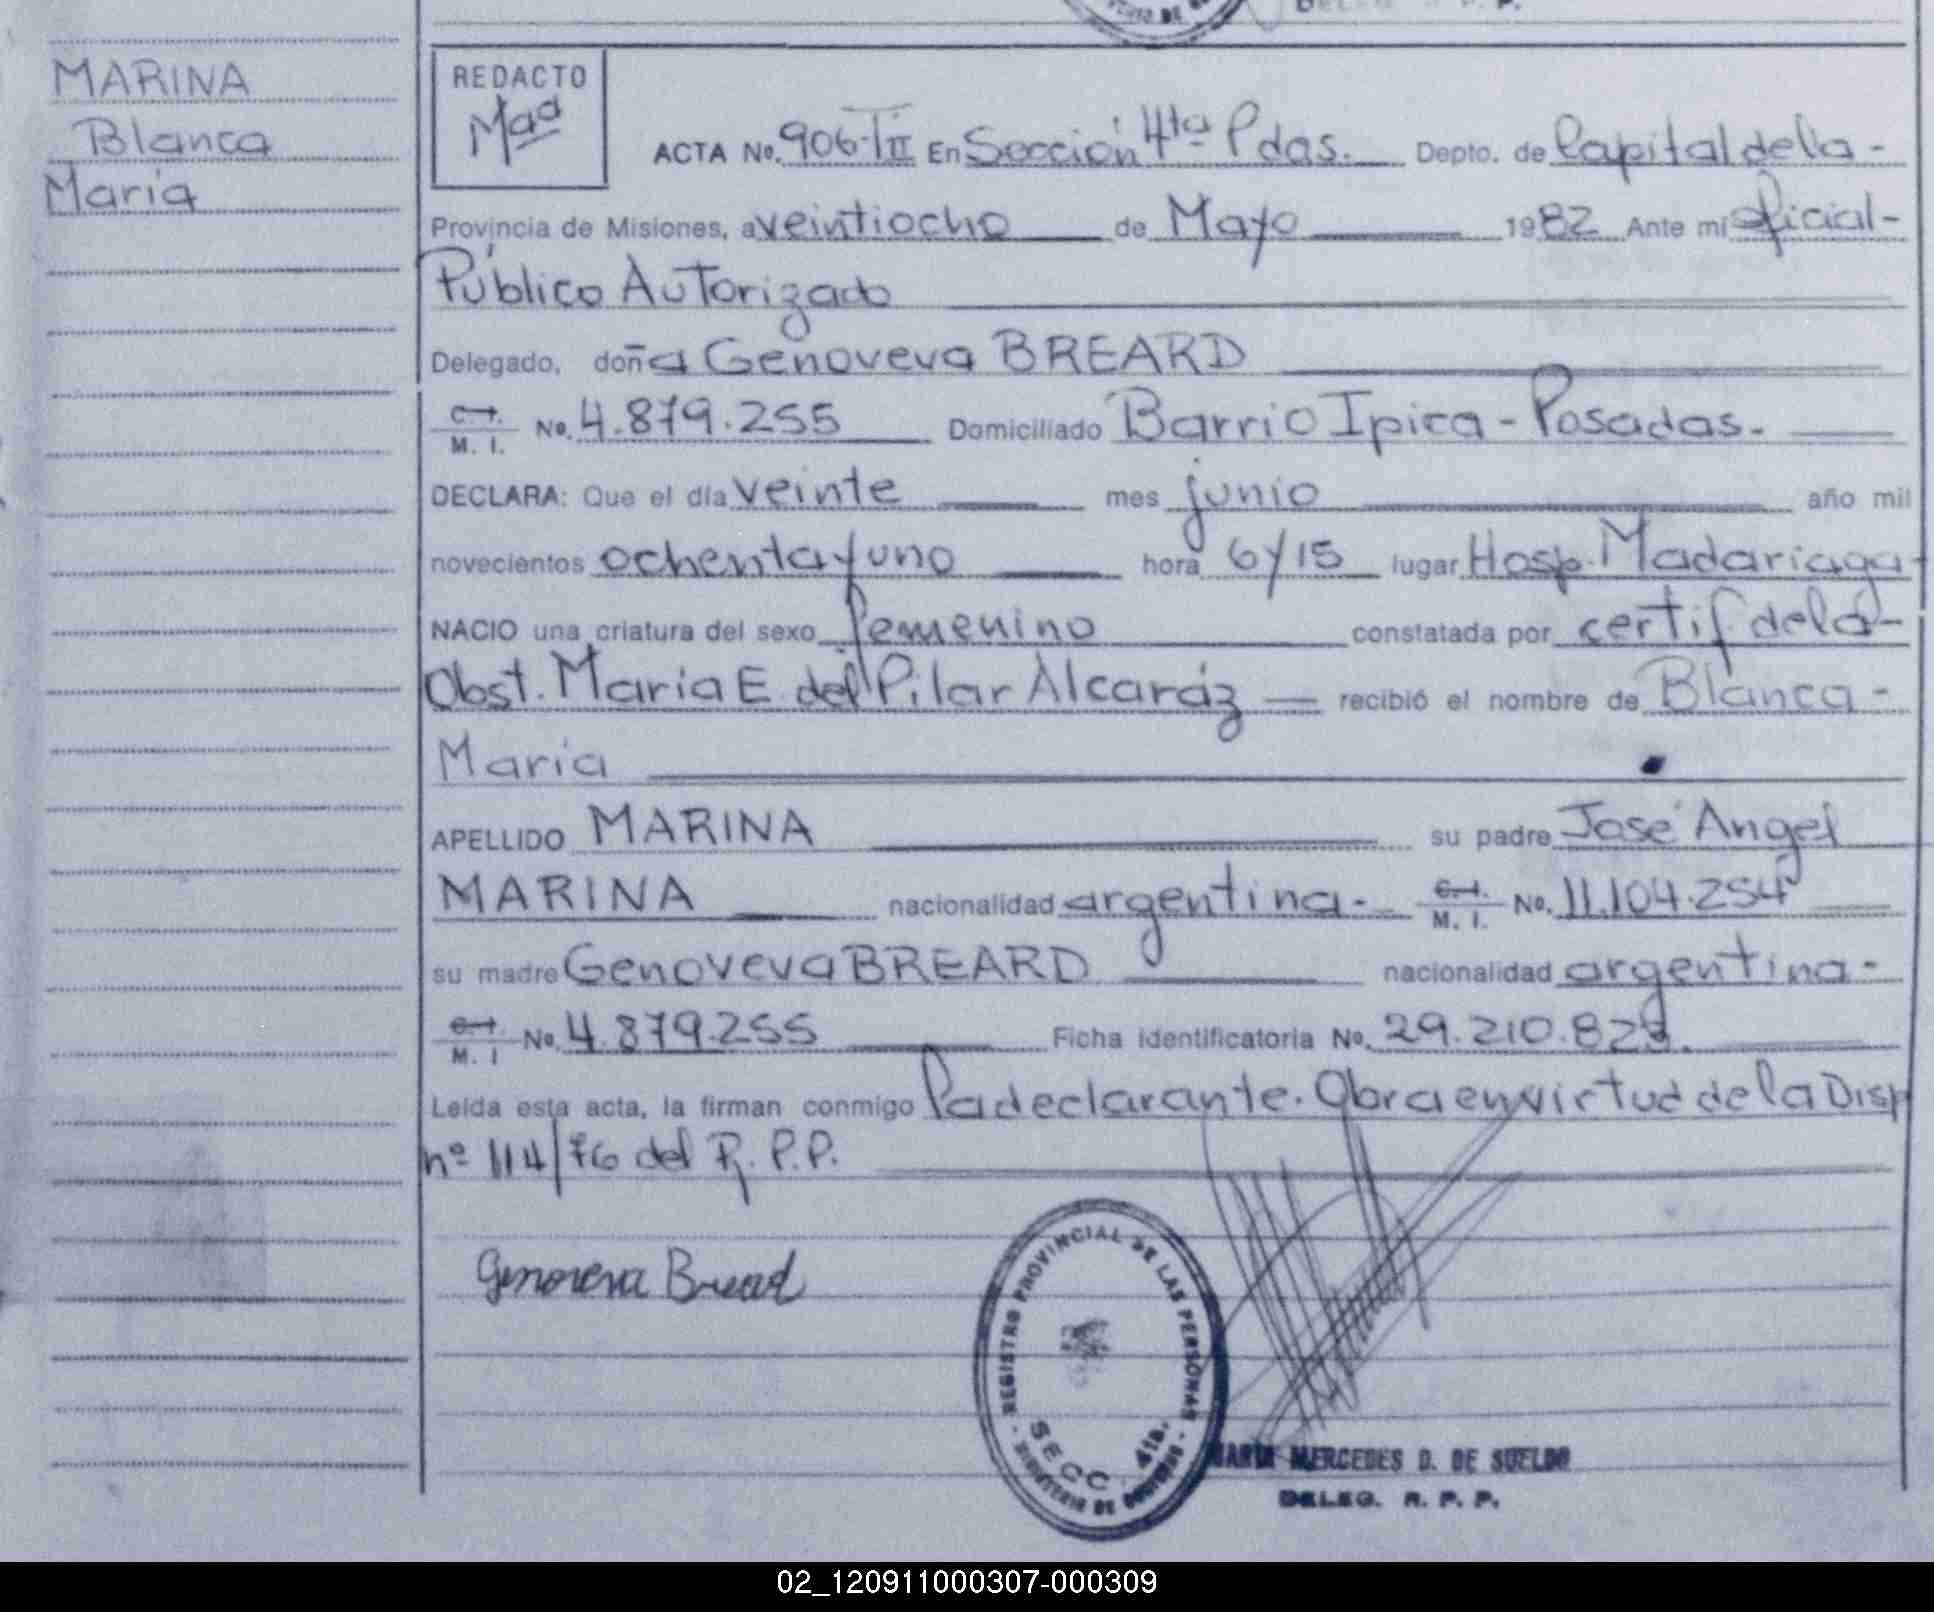 MARINA
Blanca
María
REDACTO
ACTA No. 906-TII En Sección 4ta Pdas. Depto. de Capital de la-
Provincia de Misiones, a veintiocho de Mayo 1982 Ante mí oficial-
Público Autorizado
Delegado, doña Genoveva BREARD
C. I.
M. I. No. 4.879.255 Domiciliado Barrio Ipica - Posadas.
DECLARA: Que el día veinte mes junio año mil
novecientos ochenta y uno hora 6 y 15 lugar Hosp. Madariaga-
NACIO una criatura del sexo femenino constatada por certif de la-
Obst. María E. del Pilar Alcaráz recibió el nombre de Blanca-
María
APELLIDO MARINA su padre José Angel
MARINA nacionalidad argentina.- C. I. M. I. No. 11.104.254
su madre Genoveva BREARD nacionalidad argentina-
C. I. M. I No. 4.879.255 Ficha identificatoria No. 29.210.829.
Leída esta acta, la firman conmigo la declarante. Obra en virtud de la Disp
nº 114/76 del R. P.P.
Genoveva Breard
REGISTRO PROVINCIAL DE LAS PERSONAS
SECC. 4ta.
MINISTERIO DE GOBIERNO
MARIA MERCEDES D. DE SUELDO
DELEG. R. P. P.
02_120911000307-000309